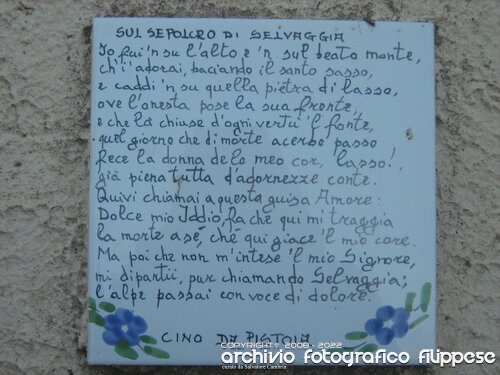 SUL SEPOLCRO DI SELVAGGIA
Io fui 'n su l'alto e 'n sul beato monte,
ch'i' adorai, baciando il santo sasso,
e caddi 'n su quella pietra di lasso,
ove l'onesta pose la sua fronte,
e che la chiuse d'ogni vertù 'l fonte,
quel giorno che di morte acerbo passo
Fece la donna de lo meo cor, lasso!,
già piena tutta d'adornezze conte.
Quivi chiamai a questa guisa Amore:
Dolce mio Iddio, fa che qui mi traggia
la morte a sé, ché qui giace 'l mio core.
Ma poi che non m'intese 'l mio Signore,
mi dipartii, pur chiamando Selvaggia;
l'alpe passai con voce di dolore.
CINO DA PISTOIA
COPYRIGHT © 2008 - 2022
archivio fotografico filippese
curato da Salvatore Cambria